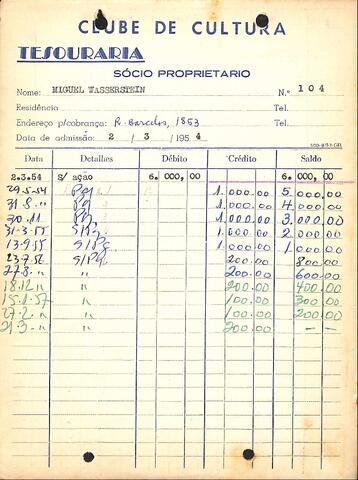 CLUBE DE CULTURA
TESOURARIA
SÓCIO PROPRIETARIO
Nome: MIGUEL WASSERSTEIN N.º 104
Residência Tel.
Endereço p/cobrança: R. Barcelos, 1853 Tel.
Data de admissão: 2 / 3 / 1954
Data Detalhes Débito Crédito Saldo
2.3.54 S/ ação 6. 000, 00 6. 000, 00
29.5.54 Pg. 1.000.00 5.000.00
31.8.〃 Pg. 1.000.00 4.000.00
30.11 Pg. 1.000.00 3.000.00
31-3-55 S/Pg. 1.000.00 2.000.00
13-9.55 S/Pg. 1.000.00 1.000.00
23.7.56 S/Pg. 200.00 800.00
27.8.〃 〃 200.00 600.00
18.12 〃 〃 200.00 400.00
15.1.57 〃 100.00 300.00
27.2.〃 〃 100.00 200.00
21.3.〃 〃 200.00 – –